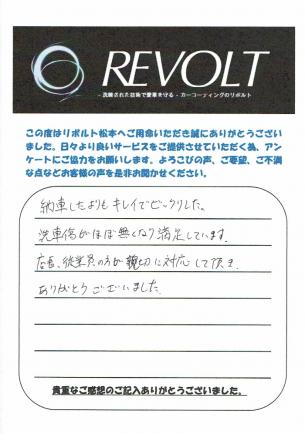 REVOLT
- 洗練された技術で愛車を守る - カーコーティングのリボルト
この度はリボルト松本へご用命いただき誠にありがとうござい
ました。日々より良いサービスをご提供させていただく為、アン
ケートにご協力をお願いします。よろこびの声、ご要望、ご不満
な点などお客様の声を是非お聞かせください。
納車したよりもキレイでビックリした。
洗車傷がほぼ無くなり満足しています。
店長、従業員の方が親切に対応して頂き
ありがとうございました。
貴重なご感想のご記入ありがとうございました。